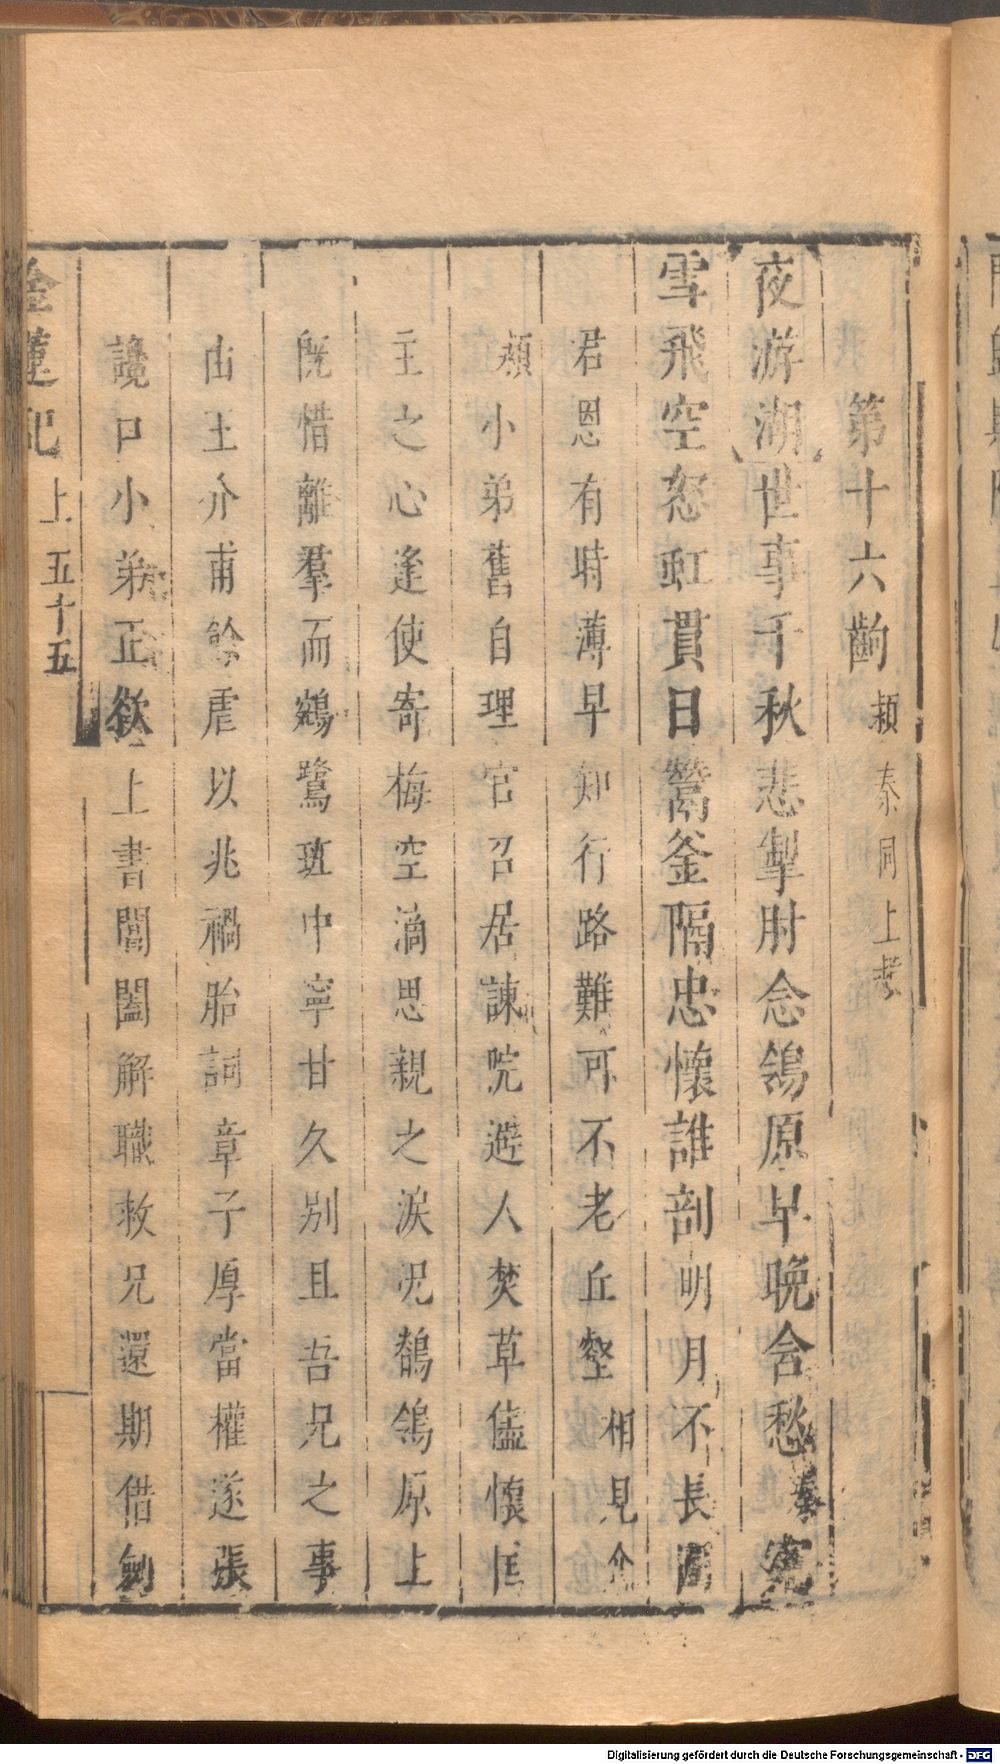 第十六齣 潁秦同上老
夜游湖世事千秋悲掣肘念鴒原早晚含愁秦寃
雪飛空怒虹貫日鬵釜隔忠懷誰剖明月不長圓
君恩有時薄早知行路難可不老丘壑相見介
潁小弟舊自理官召居諫院避人焚草儘懷匡
主之心逢使寄梅空滴思親之淚况鶺鴒原上
旣惜離羣而鵷鷺班中寧甘久別且吾兄之事
由王介甫餘虐以兆禍胎詞章子厚當權遂張
讒口小弟正欲上書閶闔解職救兄還期借劍
金蓮記 上 五十五
Digitalisierung gefördert durch die Deutsche Forschungsgemeinschaft - DFG